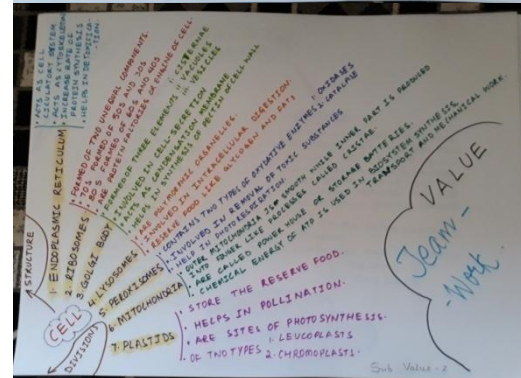 STRUCTURE
CELL
DIVISIONS
1. ENDOPLASMIC RETICULUM
• ACTS AS CELL
CIRCULATORY SYSTEM
• ACTS AS CYTOSKELETON
• INCREASE RATE OF
PROTEIN SYNTHESIS
• HELPS IN DETOXIFICA-
-TION.
2. RIBOSOMES
• FORMED OF TWO UNEQUAL COMPONENTS.
• 70S FORMED OF 50S AND 30S
• 80S FORMED OF 60S AND 40S
• ARE PROTEIN FACTORIES OR ENGINE OF CELL.
3. GOLGI BODY
• FORMED OF THREE ELEMENTS
CISTERNAE
VACUOLES
VESICLES
• INVOLVED IN CELL SECRETION
• ACTS AS CONDENSATION MEMBRANE
• HELPS IN SYNTHESIS OF PECTIN OF CELL WALL
4. LYSOSOMES
• ARE POLYMORPHIC ORGANELLES.
• INVOLVED IN INTRACELLULAR DIGESTION.
• RESERVE FOOD LIKE GLYCOGEN AND FATS
5. PEROXISOMES
• CONTAINS TWO TYPES OF OXIDATIVE ENZYMES
1. OXIDASES
2. CATALASE
• INVOLVED IN REMOVAL OF TOXIC SUBSTANCES
• HELP IN PHOTORESPIRATION.
6. MITOCHONDRIA
• OUTER MITOCHONDRIA IS SMOOTH WHILE INNER PART IS PRODUCED
INTO FINGER LIKE PROCESSES CALLED CRISTAE.
• ARE CALLED POWER HOUSE OR STORAGE BATTERIES.
• CHEMICAL ENERGY OF ATP IS USED IN BIOSYSTEM SYNTHESIS,
TRANSPORT AND MECHANICAL WORK.
7. PLASTIDS
• STORE THE RESERVE FOOD.
• HELPS IN POLLINATION.
• ARE SITES OF PHOTOSYNTHESIS.
• OF TWO TYPES 1. LEUCOPLASTS
2. CHROMOPLASTS.
VALUE
Team -
- Work.
Sub Value -